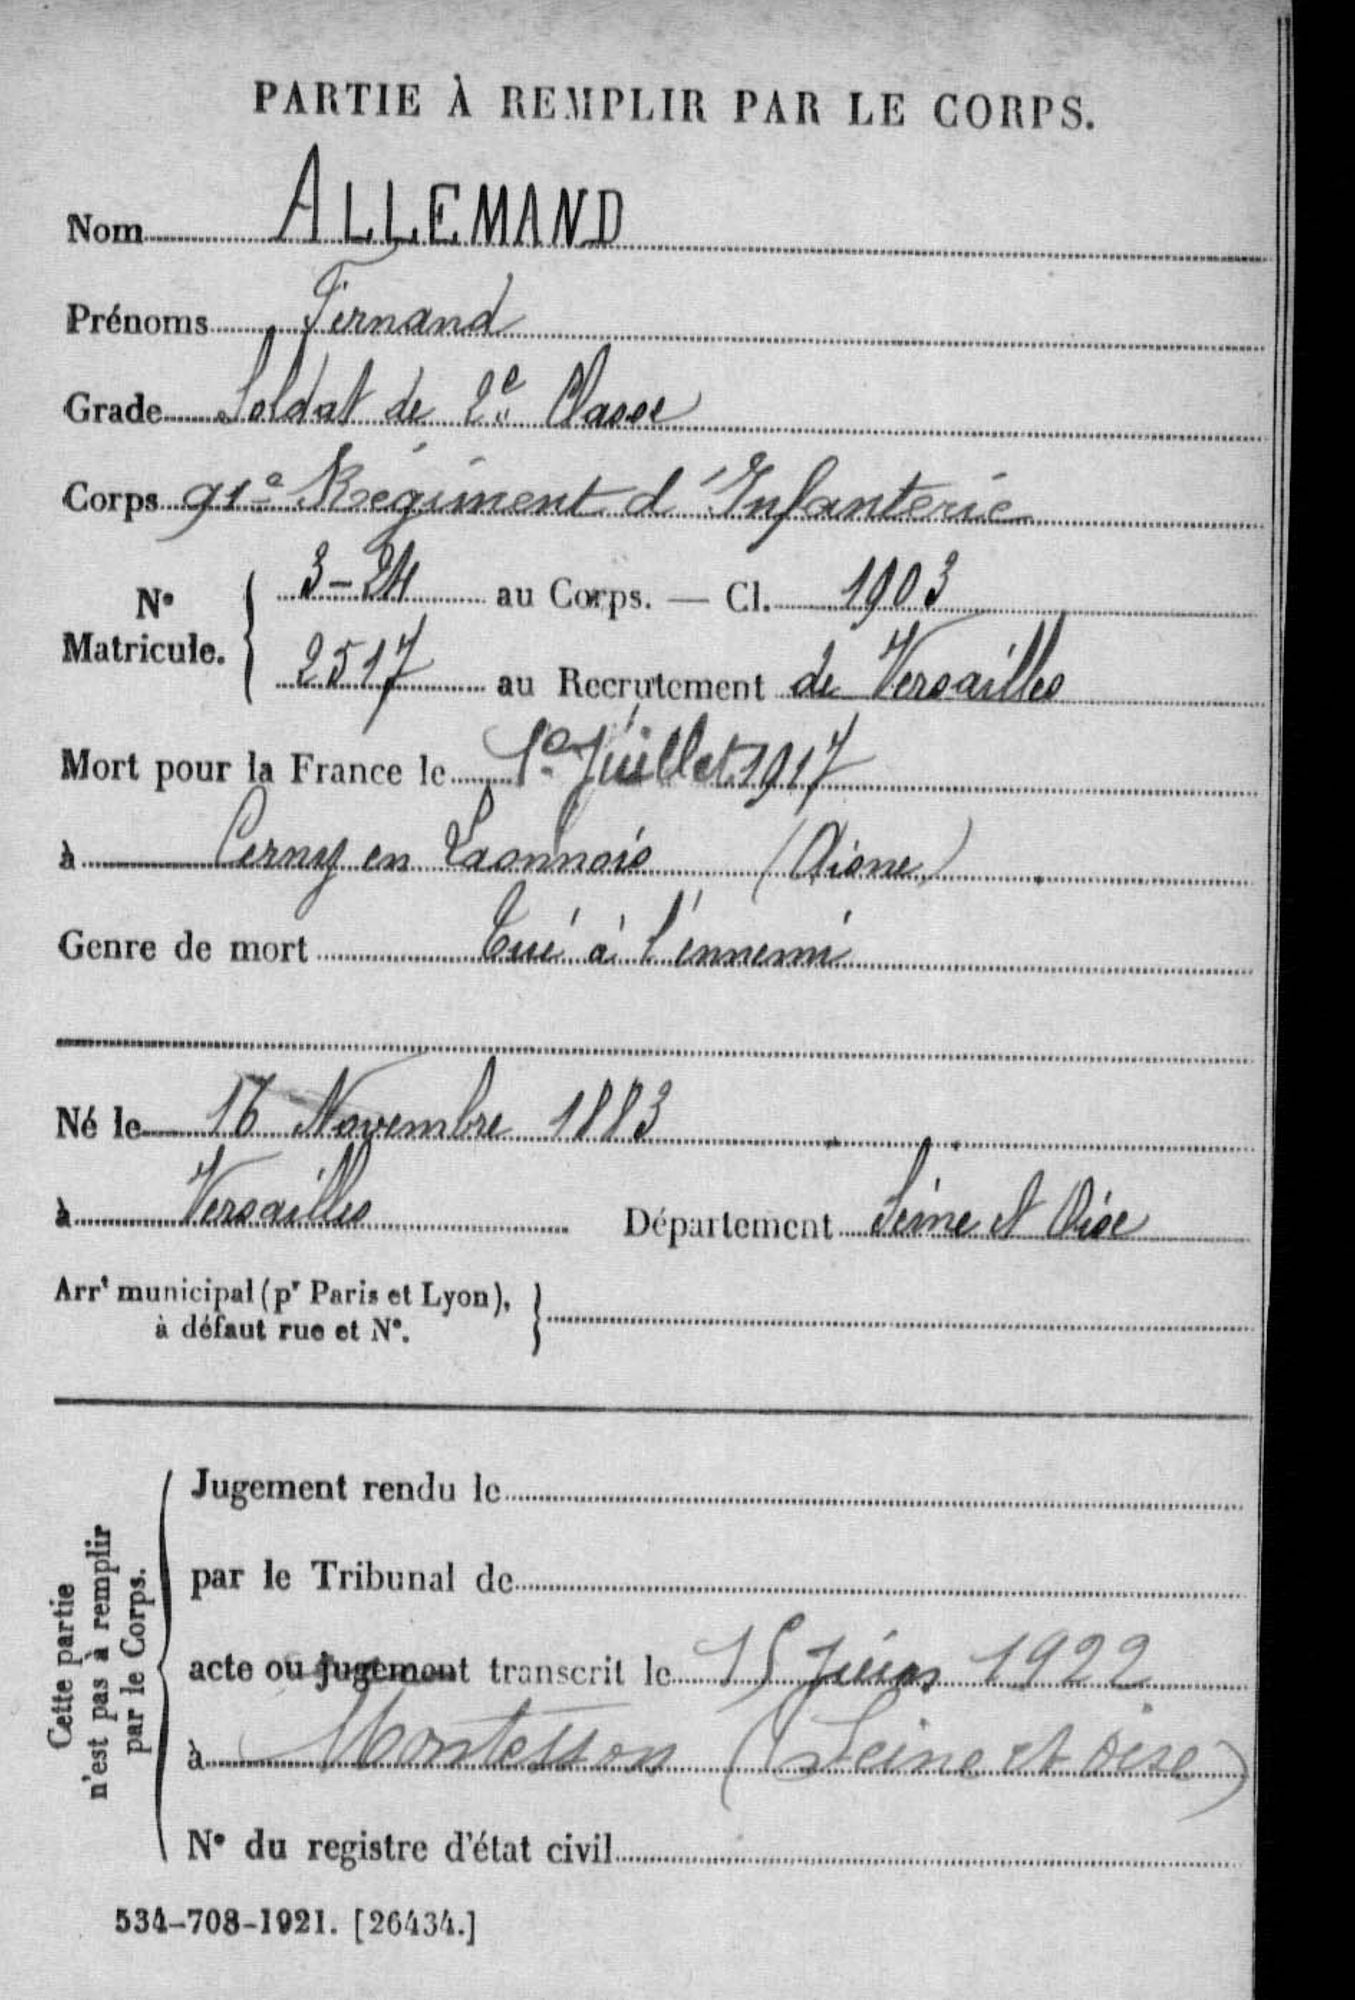 PARTIE À REMPLIR PAR LE CORPS.
Nom ALLEMAND
Prénoms Fernand
Grade Soldat de 2e Classe
Corps 91e Régiment d'Infanterie
No Matricule. { 3-24 au Corps. — Cl. 1903
2517 au Recrutement de Versailles
Mort pour la France le 1e Juillet 1917
à Cerny en Laonnois (Aisne)
Genre de mort Tué à l'énnemi
Né le 16 Novembre 1883
à Versailles Département Seine et Oise
Arrt municipal (pr Paris et Lyon),
à défaut rue et No. }
Cette partie
n'est pas à remplir
par le Corps.
Jugement rendu le
par le Tribunal de
acte ou jugement transcrit le 15 Juin 1922
à Montesson (Seine et Oise)
No du registre d'état civil
534-708-1921. [26434.]